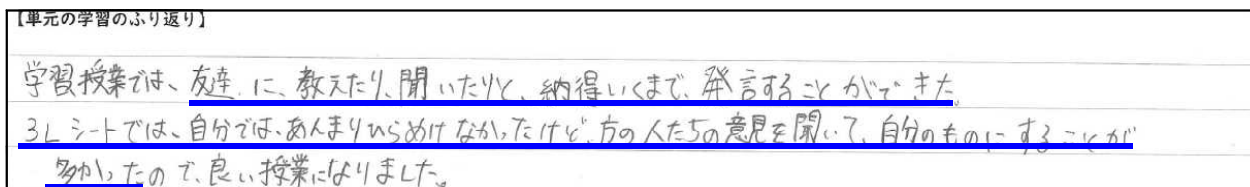 【単元の学習のふり返り】
学習授業では、友達に、教えたり、聞いたりと、納得いくまで、発言することができた。
3Lシートでは、自分では、あんまりひらめけなかったけど、方の人たちの意見を聞いて、自分のものにすることが
多かったので、良い授業になりました。